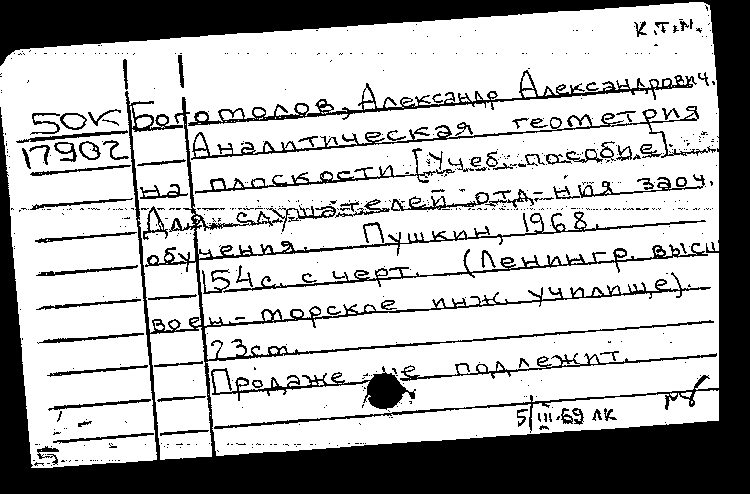 К.Т.М.
50К Богомолов, Александр Александрович.
17902 Аналитическая геометрия
на плоскости [Учеб. пособие].
Для слушателей отд-ния заоч.
обучения. Пушкин, 1968.
154 с. с черт. (Ленингр. высш
воен.-морское инж. училище).
23 см.
Продаже не подлежит.
5/III-69 ЛК
5